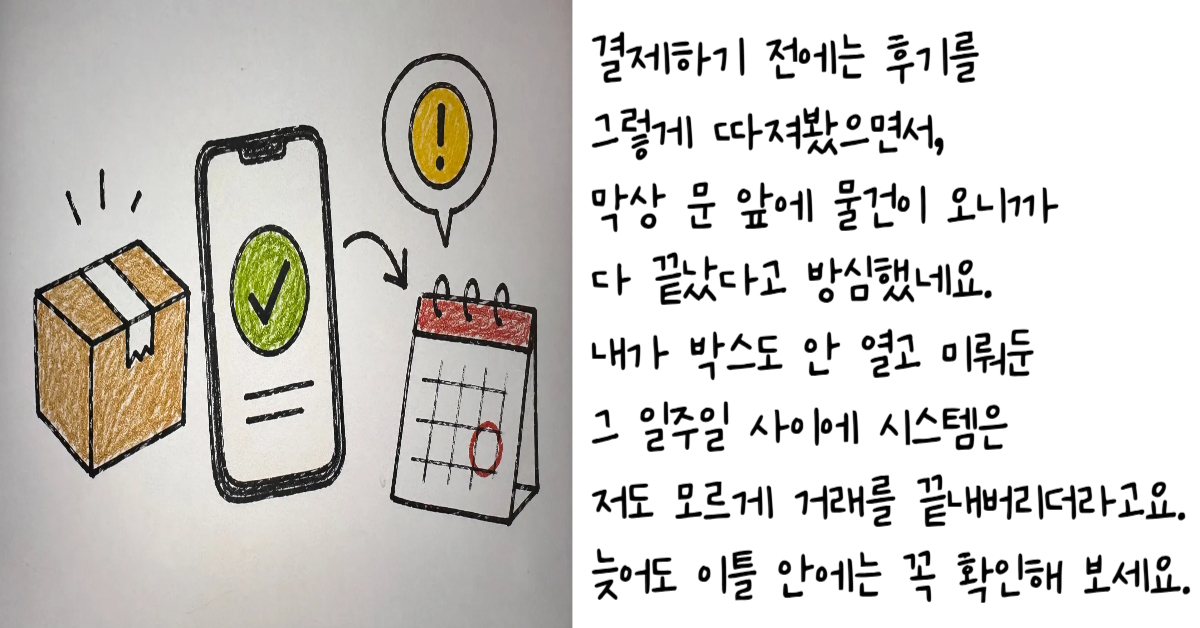 결제하기 전에는 후기를
그렇게 따져봤으면서,
막상 문 앞에 물건이 오니까
다 끝났다고 방심했네요.
내가 박스도 안 열고 미뤄둔
그 일주일 사이에 시스템은
저도 모르게 거래를 끝내버리더라고요.
늦어도 이틀 안에는 꼭 확인해 보세요.